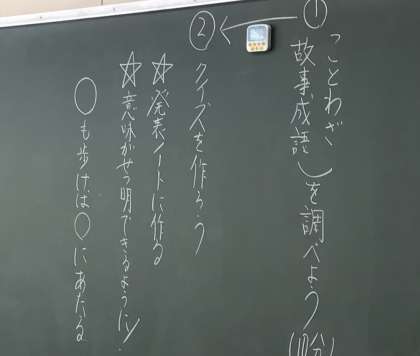 ①
ことわざ
故事成語 を調べよう
(10分)
②
クイズを作ろう
☆発表ノートに作る
☆意味がせつ明できるように!
○も歩けば○にあたる